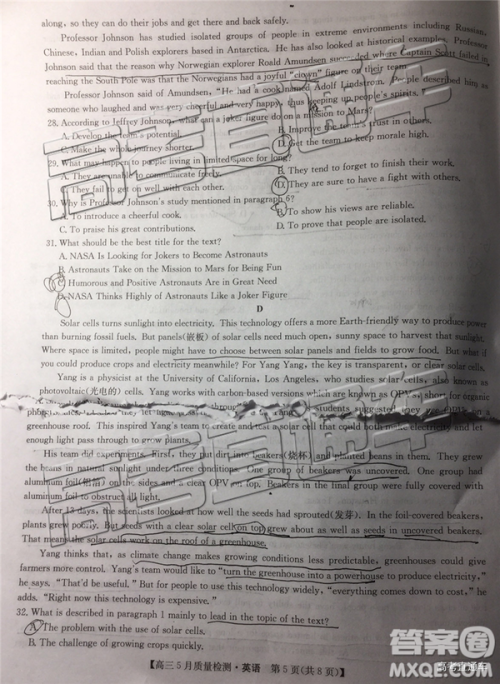 along, so they can do their jobs and get there and back safely.
Professor Johnson has studied isolated groups of people in extreme environments including Russian,
Chinese, Indian and Polish explorers based in Antarctica. He has also looked at historical examples. Professor
Johnson said that the reason why Norwegian explorer Roald Amundsen succeeded where Captain Scott failed in
reaching the South Pole was that the Norwegians had a joyful "clown" figure on their team.
Professor Johnson said of Amundsen, "He had a cook named Adolf Lindstrom. People described him as
someone who laughed and was very cheerful and very happy, thus keeping up people's spirits.
28. According to Jeffrey Johnson, what can a joker figure do on a mission to Mars?
A. Develop the team's potential.
B. Improve the team's trust in others.
C. Make the whole journey shorter.
D. Get the team to keep morale high.
29. What may happen to people living in limited space for long?
A. They are unable to communicate freely.
B. They tend to forget to finish their work.
C. They fail to get on well with each other.
D. They are sure to have a fight with others.
30. Why is Professor Johnson's study mentioned in paragraph 6?
A. To introduce a cheerful cook.
B. To show his views are reliable.
C. To praise his great contributions.
D. To prove that people are isolated.
31. What should be the best title for the text?
A. NASA Is Looking for Jokers to Become Astronauts
B. Astronauts Take on the Mission to Mars for Being Fun
C. Humorous and Positive Astronauts Are in Great Need
D. NASA Thinks Highly of Astronauts Like a Joker Figure
D
Solar cells turns sunlight into electricity. This technology offers a more Earth-friendly way to produce power
than burning fossil fuels. But panels(嵌板) of solar cells need much open, sunny space to harvest that sunlight.
Where space is limited, people might have to choose between solar panels and fields to grow food. But what if
you could produce crops and electricity meanwhile? For Yang Yang, the key is transparent, or clear solar cells.
Yang is a physicist at the University of California, Los Angeles, who studies solar cells, also known as
photovoltaic(光电的) cells. Yang works with carbon-based versions which are known as OPV, short for organic
students suggested they use
greenhouse roof. This inspired Yang's team to create and test a solar cell that could both make electricity and let
enough light pass through to grow plants.
His team did experiments. First, they put dirt into beakers(烧杯) and planted beans in them. They grew the
beans in natural sunlight under three conditions. One group of beakers was uncovered. One group had
aluminum foil(铝箔) on the sides and a clear OPV on top. Beakers in the final group were fully covered with
aluminum foil to obstruct all light.
After 13 days, the scientists looked at how well the seeds had sprouted(发芽). In the foil-covered beakers,
plants grew poorly. But seeds with a clear solar cell on top grew about as well as seeds in uncovered beakers.
That meant the solar cells work on the roof of a greenhouse.
Yang thinks that, as climate change makes growing conditions less predictable, greenhouses could give
farmers more control. Yang's team would like to "turn the greenhouse into a powerhouse to produce electricity,"
he says. "That'd be useful." But for people to use this technology widely, "everything comes down to cost," he
adds. "Right now this technology is expensive."
32. What is described in paragraph 1 mainly to lead in the topic of the text?
A. The problem with the use of solar cells.
B. The challenge of growing enough food.
【高三5月质量检测·英语 第5页(共8页)】
高考直通车
高考直通车
高考直通车
答案圈
MXQE.COM